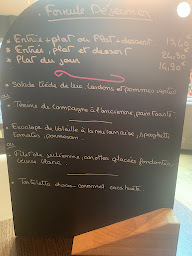 Formule Déjeuner
* Entrée, plat ou Plat + dessert
* Entrée, plat et dessert 24,90
* Plat du jour 14,90
* Salade tiède de lardons et pommes
* Terrine de campagne à l'ancienne, pain
* Escalope de volaille à la milanaise, spaghetti
tomates, parmesan
ou
julienne, carottes glacées fondantes,
blanc
* Tartelette choco-caramel